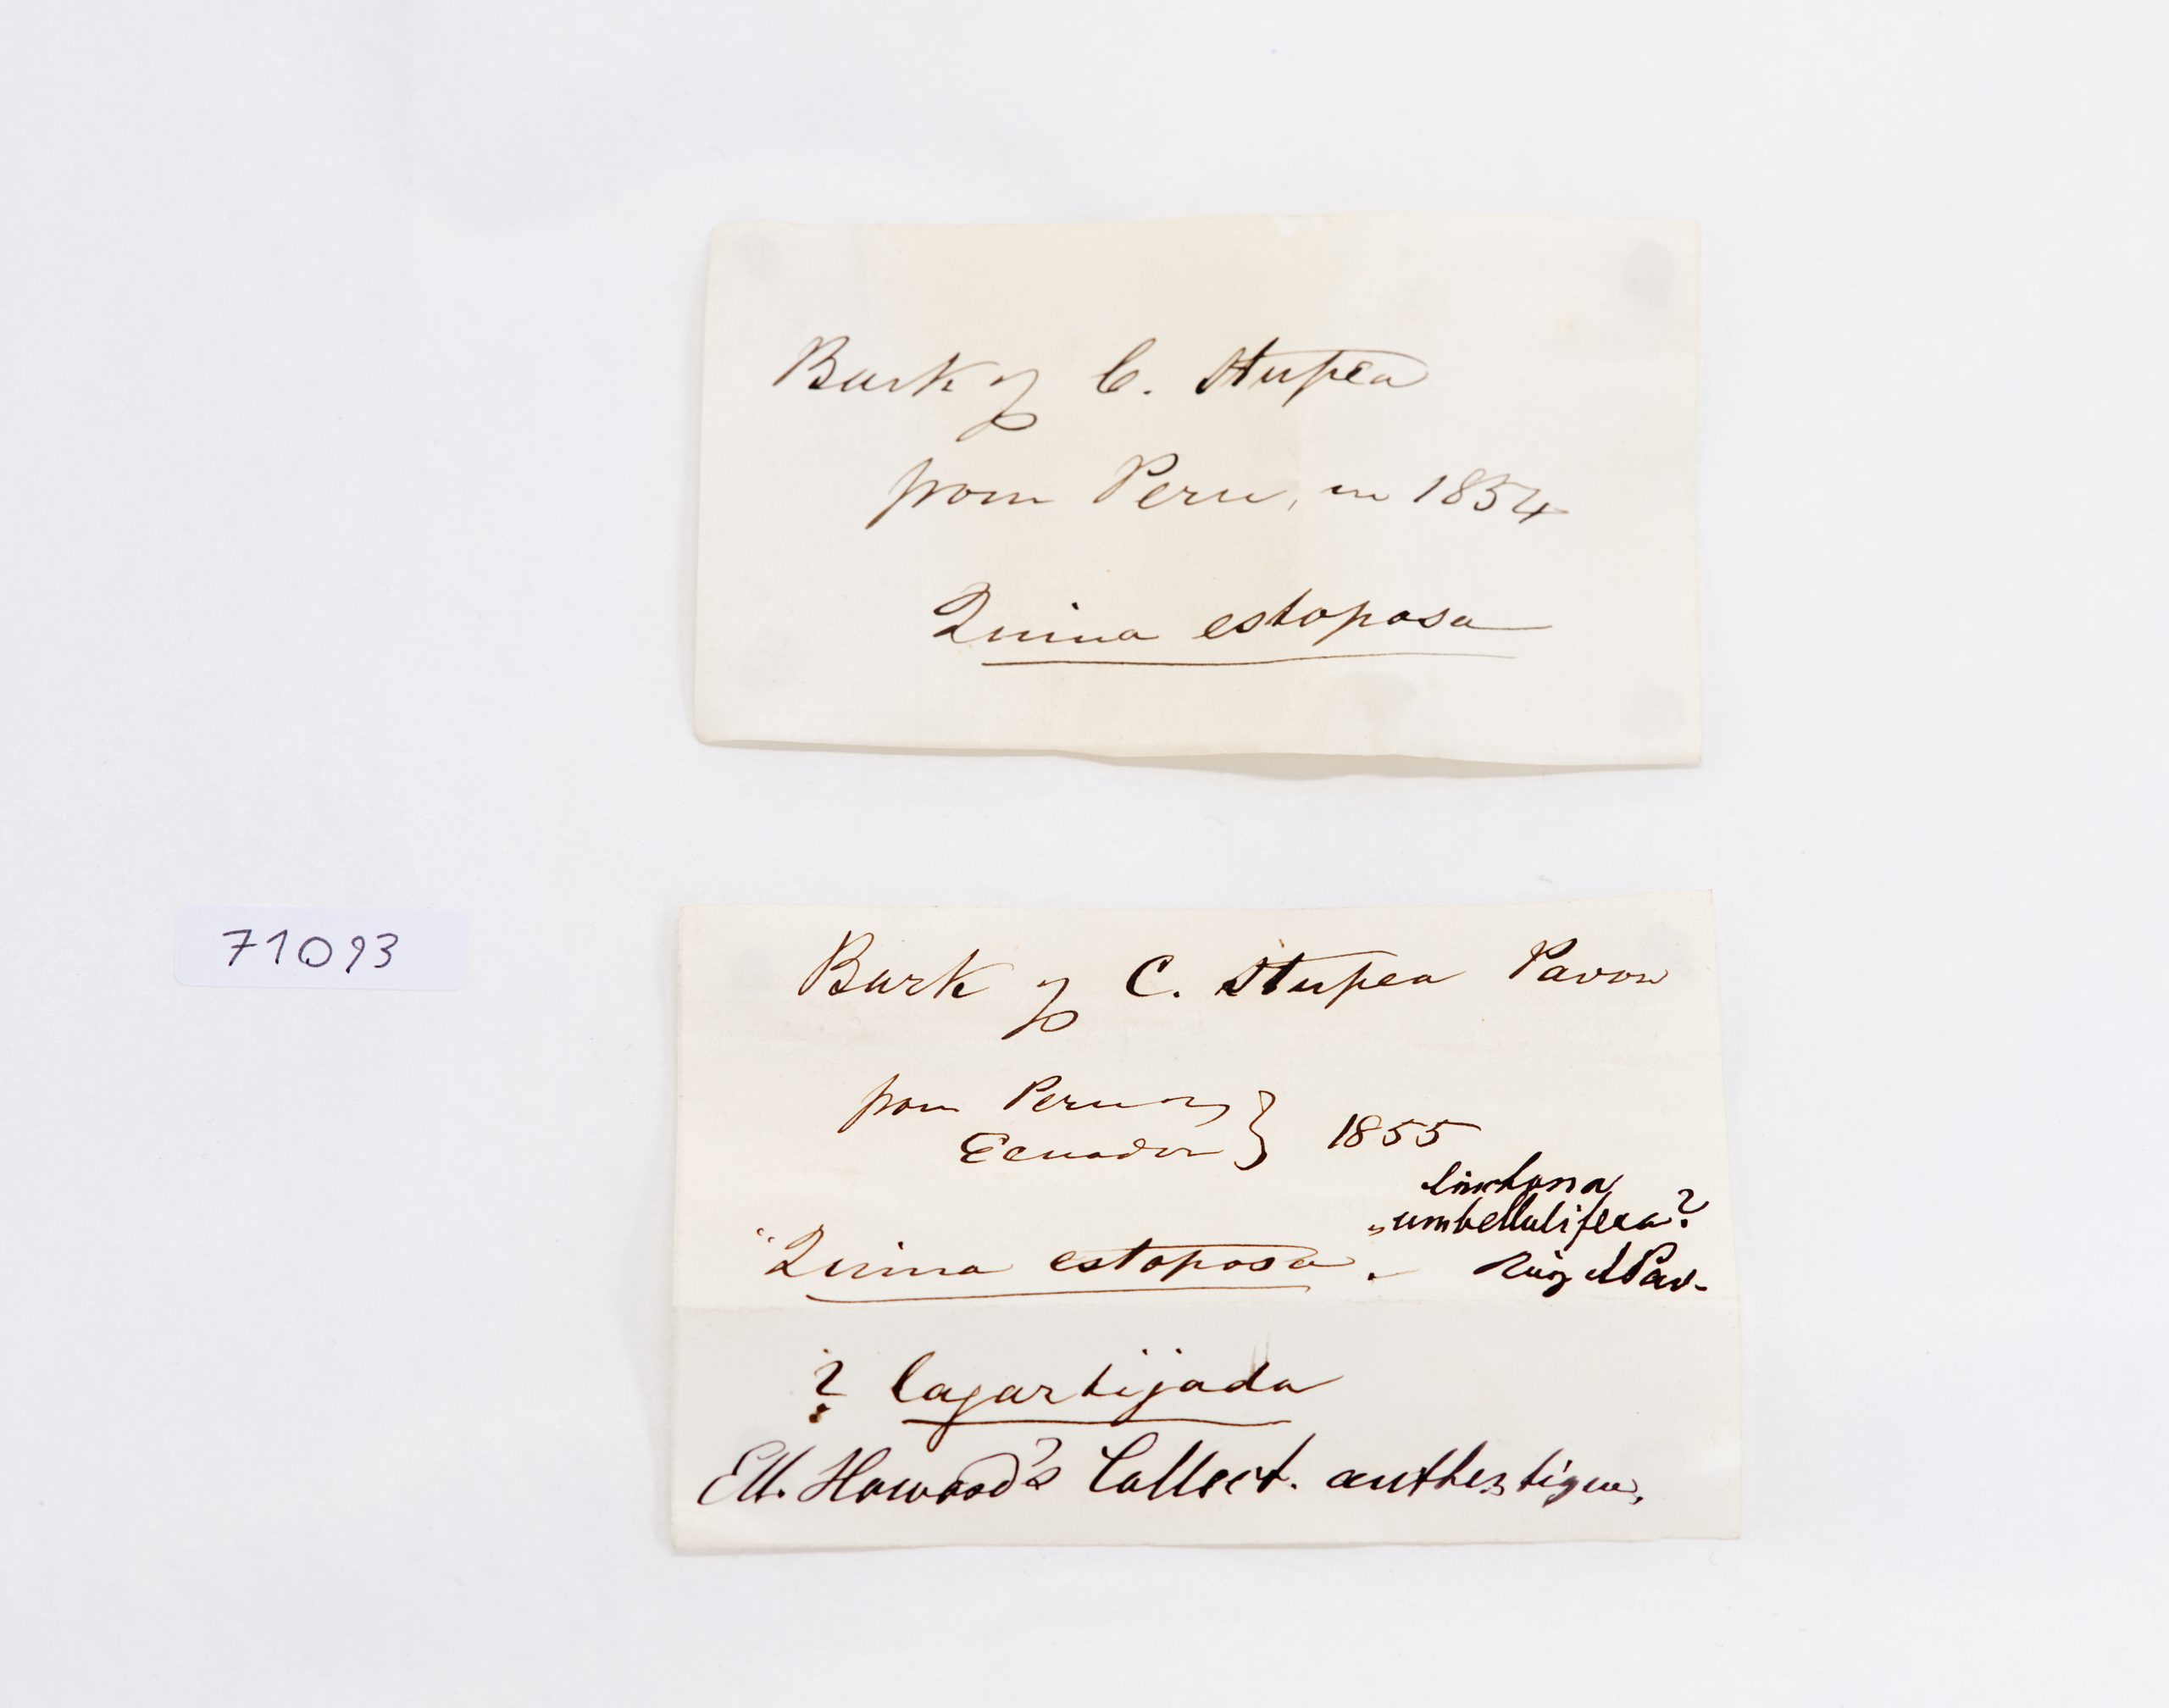 Bark of C. Stupea
from Peru, in 1854
Quina estoposa
71093
Bark of C. Stupea Pavon
from Peru or
Ecuador } 1855
Cinchona
umbellulifera?
"Quina estoposa. - Ruiz et Pav.
? lagartijada
Ell. Howard's Collect. authentique.